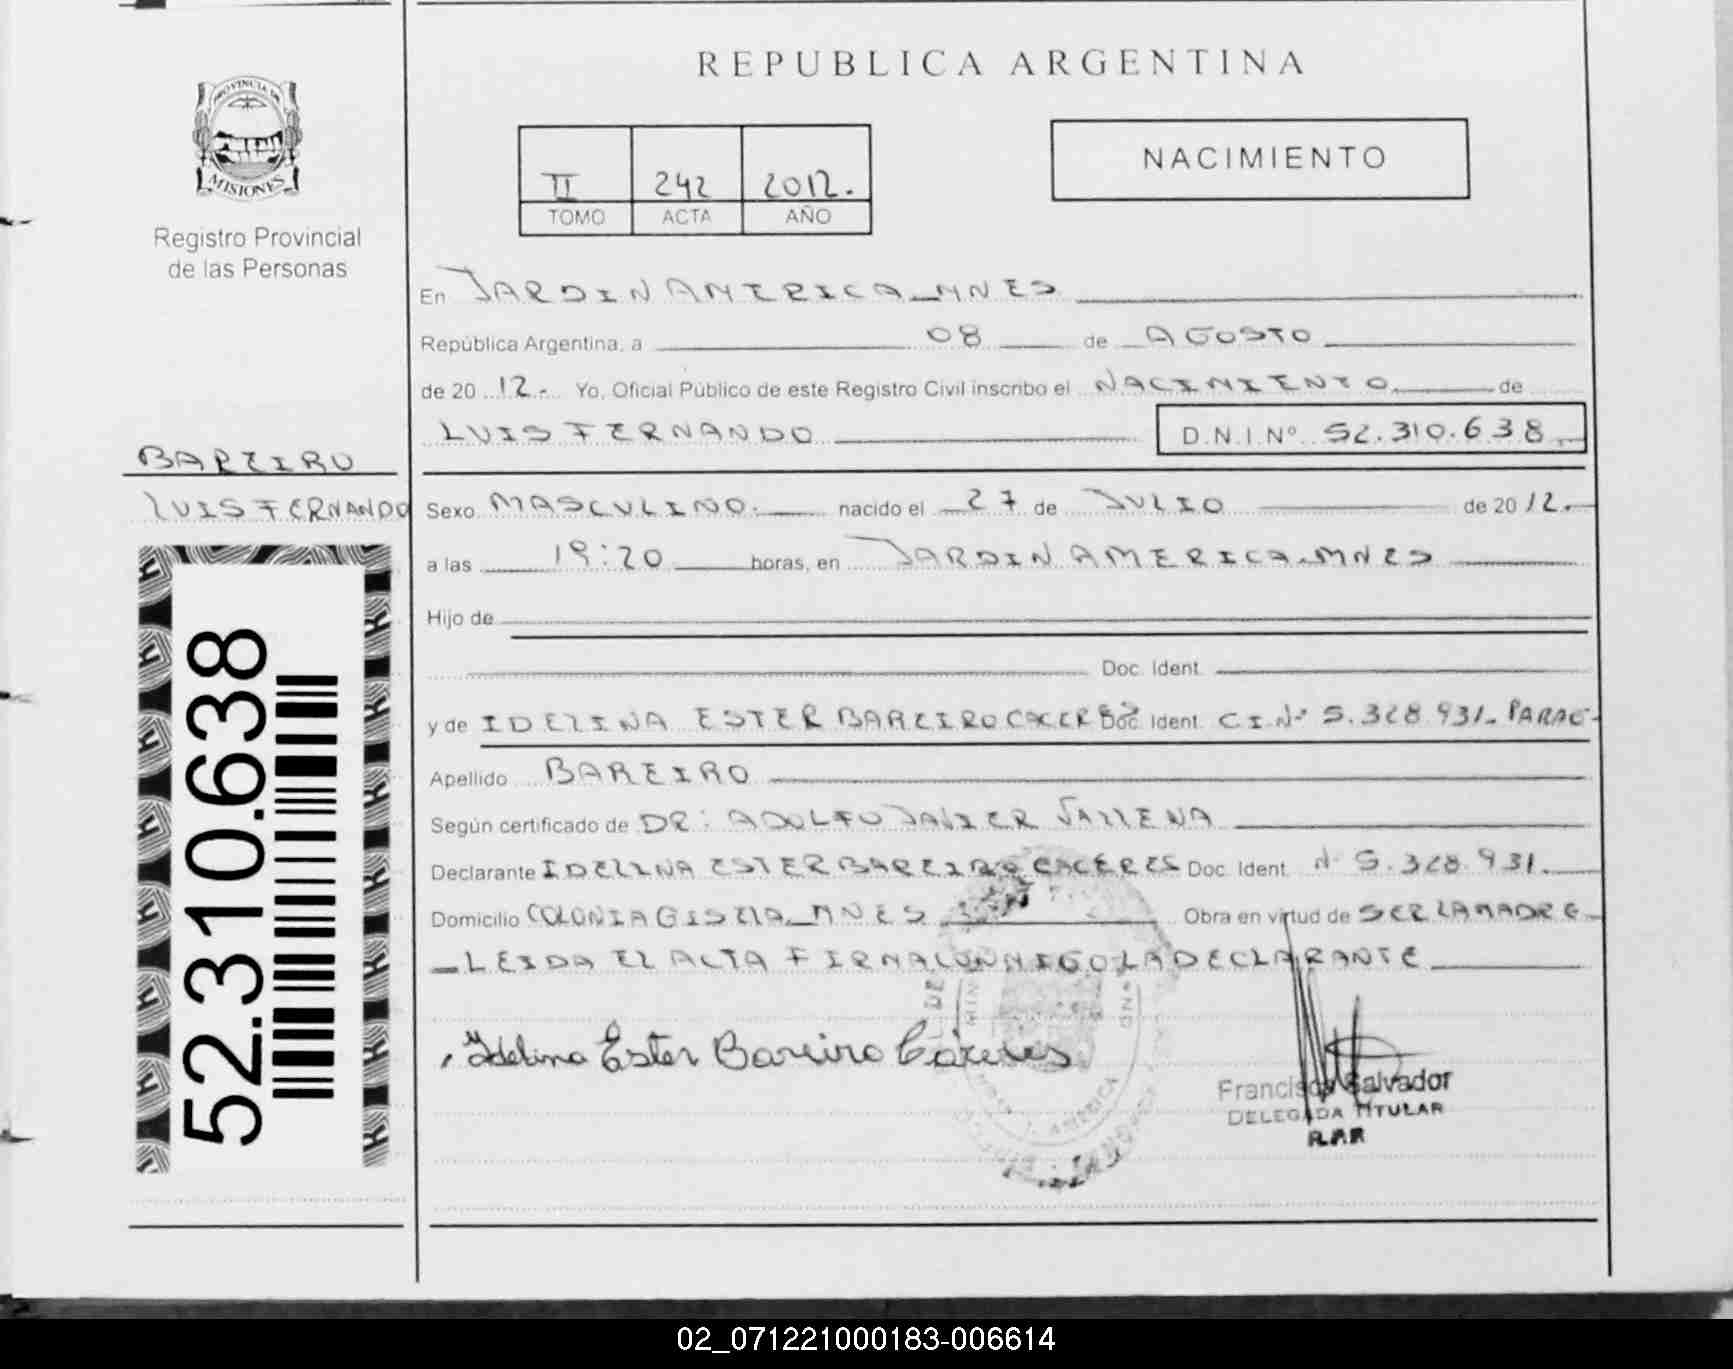 REPUBLICA ARGENTINA
PROVINCIA DE
MISIONES
Registro Provincial
de las Personas
II 242 2012.
TOMO ACTA AÑO
NACIMIENTO
En JARDIN AMERICA_MNES
República Argentina, a 08 de AGOSTO
de 20 12.- Yo, Oficial Público de este Registro Civil inscribo el NACIMIENTO de
LUIS FERNANDO D.N.I.Nº 52.310.638.
BAREIRO
LUIS FERNANDO
52.310.638
Sexo MASCULINO. nacido el 27 de JULIO de 20 12.
a las 19:20 horas, en JARDIN AMERICA.MNES
Hijo de
Doc. Ident.
y de IDELINA ESTER BAREIRO CACERES Doc. Ident. C.I.Nº 5.328.931_ PARAG-
Apellido BAREIRO
Según certificado de DR: ADOLFO JAVIER
Declarante IDELINA ESTER BAREIRO CACERES Doc. Ident. Nº 5.328.931.
Domicilio COLONIA GISELA_MNES Obra en virtud de SER LA MADRE
_LEIDA EL ACTA FIRMA CONMIGO LA DECLARANTE
Idelina Ester Bareiro Cáceres
AMERICA
Francisca Salvador
DELEGADA TITULAR
R.P.P.
02_071221000183-006614